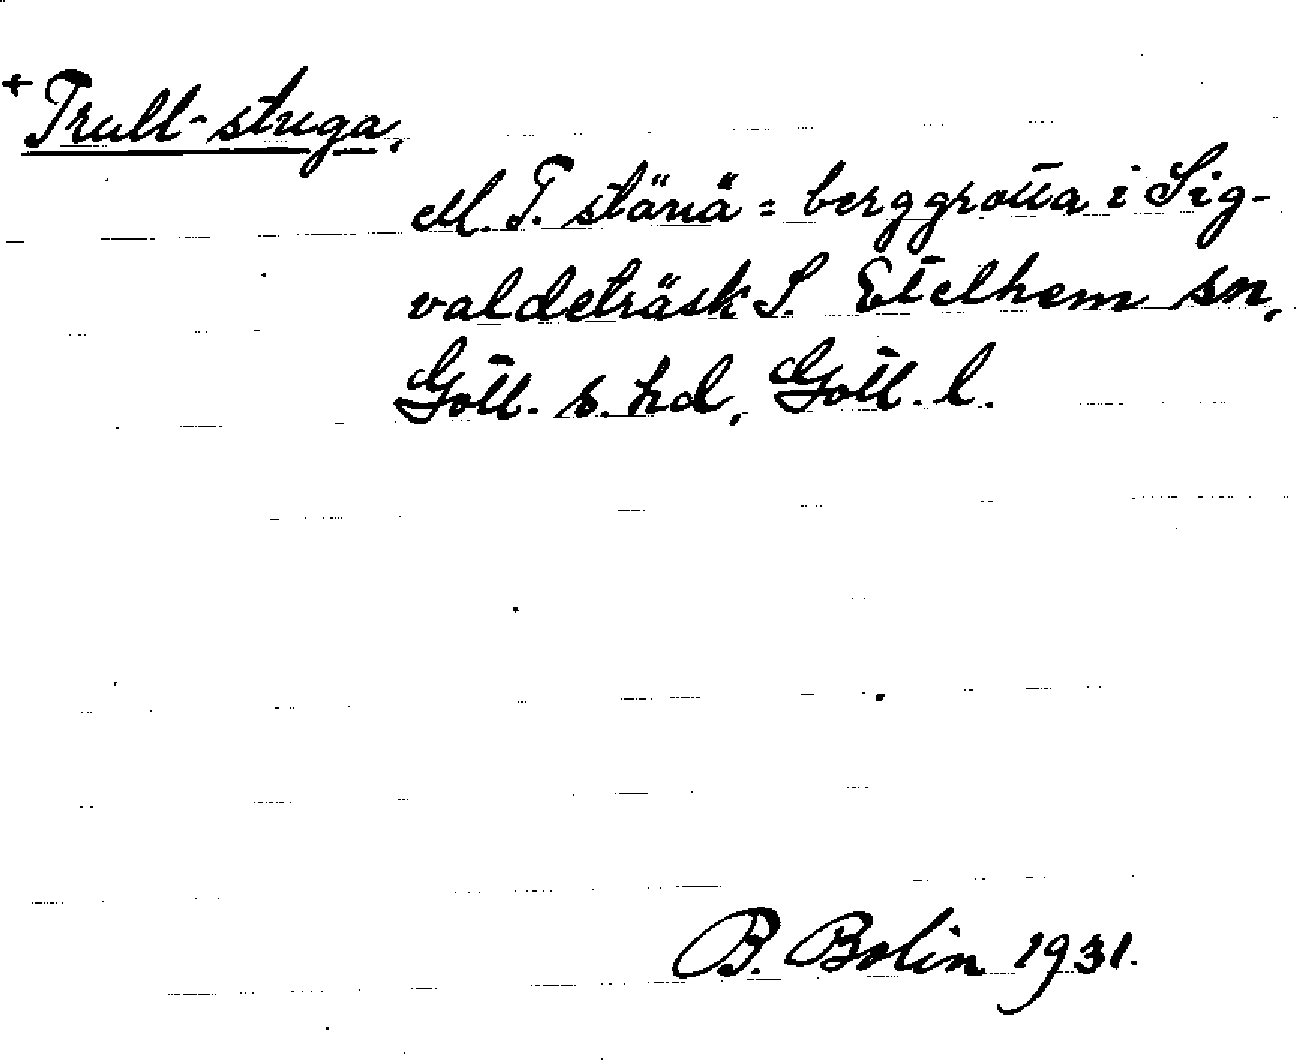 + Trull-stuga,
M. T. stänä = berggrotta i Sig-
valdeträsk S. Etelhem sn,
Gotl. s. hd, Gotl. l.
B. Bolin 1931.